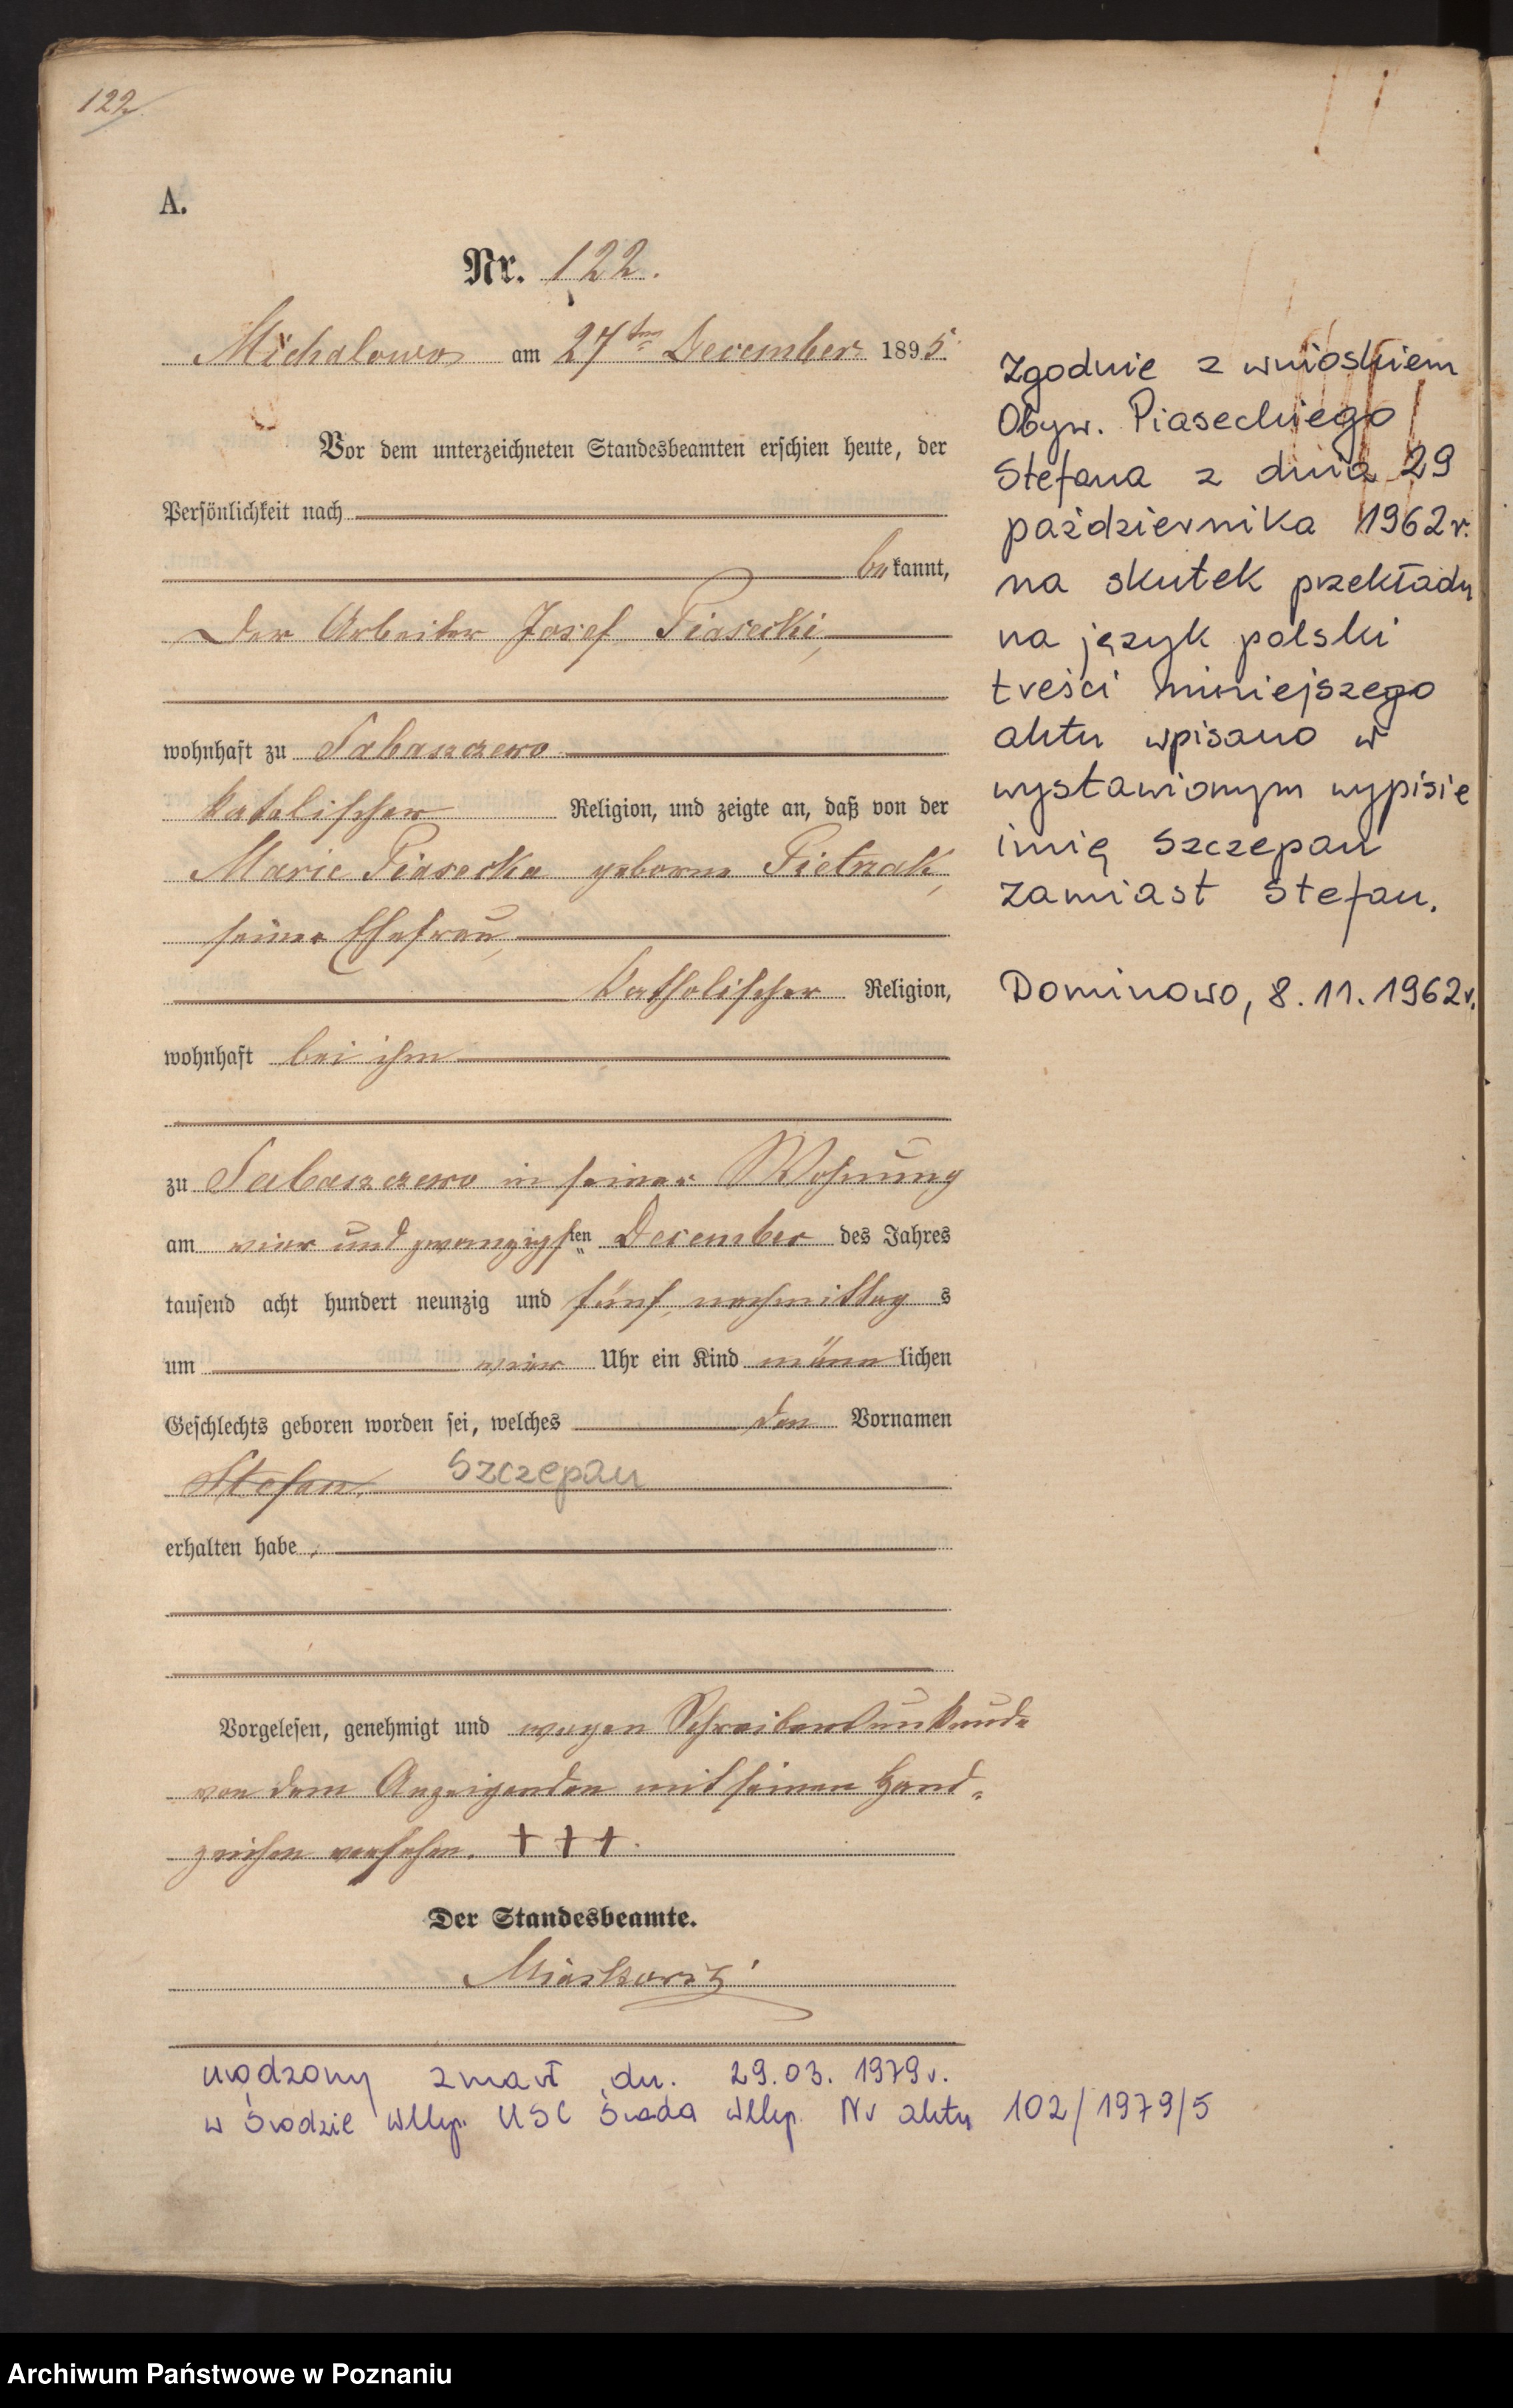 122
A.
Nr. 122.
Michalowo am 27ten December 1895
Vor dem unterzeichneten Standesbeamten erschien heute, der
Persönlichkeit nach
bekannt,
der Arbeiter Josef Piasecki,
wohnhaft zu Sabaszczewo
katolischer Religion, und zeigte an, daß von der
Marie Piasecka geborne Pietrzak,
seiner Ehefrau,
katholischer Religion,
wohnhaft bei ihm
zu Sabaszczewo in seiner Wohnung
am vier und zwanzigsten December des Jahres
tausend acht hundert neunzig und fünf, nachmittags
um vier Uhr ein Kind männlichen
Geschlechts geboren worden sei, welches den Vornamen
Stefan. Szczepan
erhalten habe.
Vorgelesen, genehmigt und wegen Schreibensunkunde
von dem Anzeigenden mit seinen Hand-
zeichen versehen. + + +.
Der Standesbeamte.
Zgodnie z wnioskiem
Obyw. Piaseckiego
Stefana z dnia 29
października 1962 r.
na skutek przekładu
na język polski
treści niniejszego
aktu wpisano w
wystawionym wypisie
imię Szczepan
zamiast Stefan.
Dominowo, 8.11.1962 r.
urodzony zmarł dn. 29.03.1979r.
w Środzie Wlkp. USC Środa Wlkp. Nr aktu 102/1979/5
Archiwum Państwowe w Poznaniu